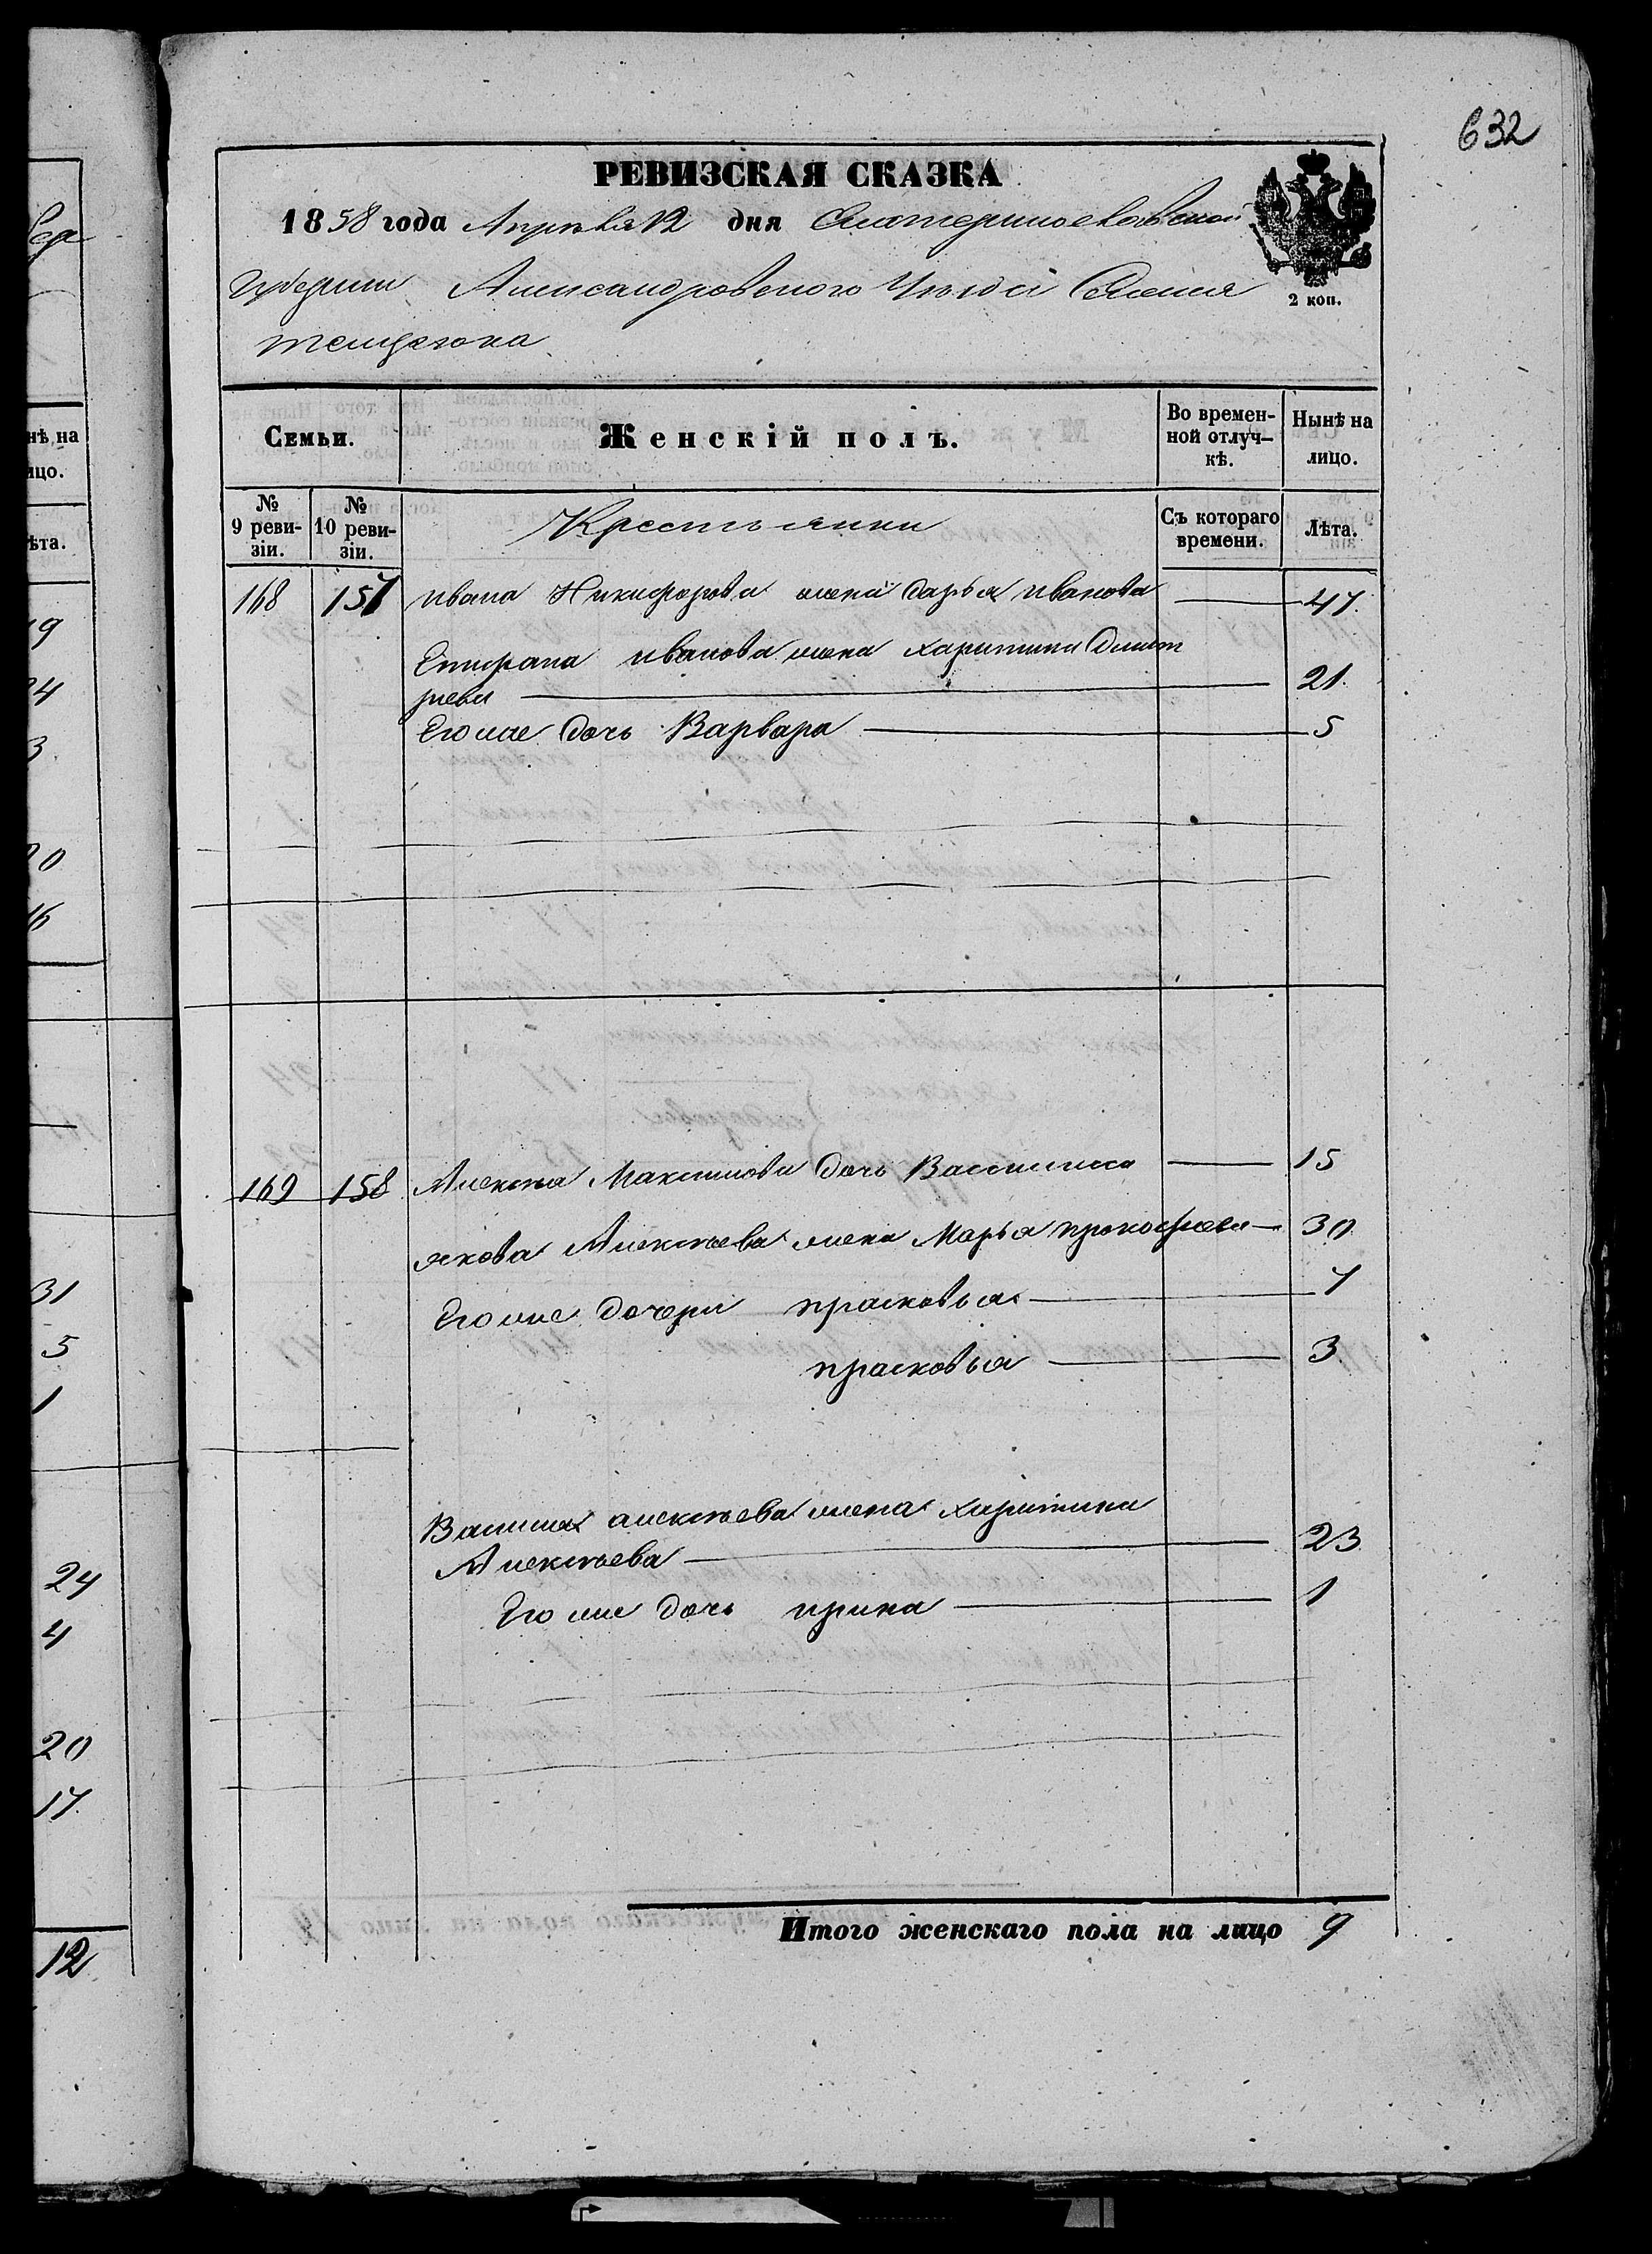 632
РЕВИЗСКАЯ СКАЗКА
1858 года Апреля 12 дня Екатеринославской
Губернии Александровского Уезда Селения
2 коп.
Семьи.
Женскій полъ.
Во времен-
ной отлуч-
кѣ.
Нынѣ на
лицо.
№
9 реви-
зіи.
№
10 реви-
зіи.
Крестьянки
Съ котораго
времени.
Лѣта.
168 157 ивана Никифорова жена дарья иванова 47
иванова жена харитина Дмит
риева 21
Его же дочь Варвара 5
169 158 Алексея Максимова дочь Вассилиса 15
якова Алексѣева жена Марья прокофьева 30
Его же дочери прасковья 7
прасковья 3
алексѣева жена харитина
Алексѣева 23
Его же дочь ирина 1
Итого женскаго пола на лицо 9
нѣ на
ицо.
ѣта.
19
24
3
20
16
31
5
1
24
4
20
17
12